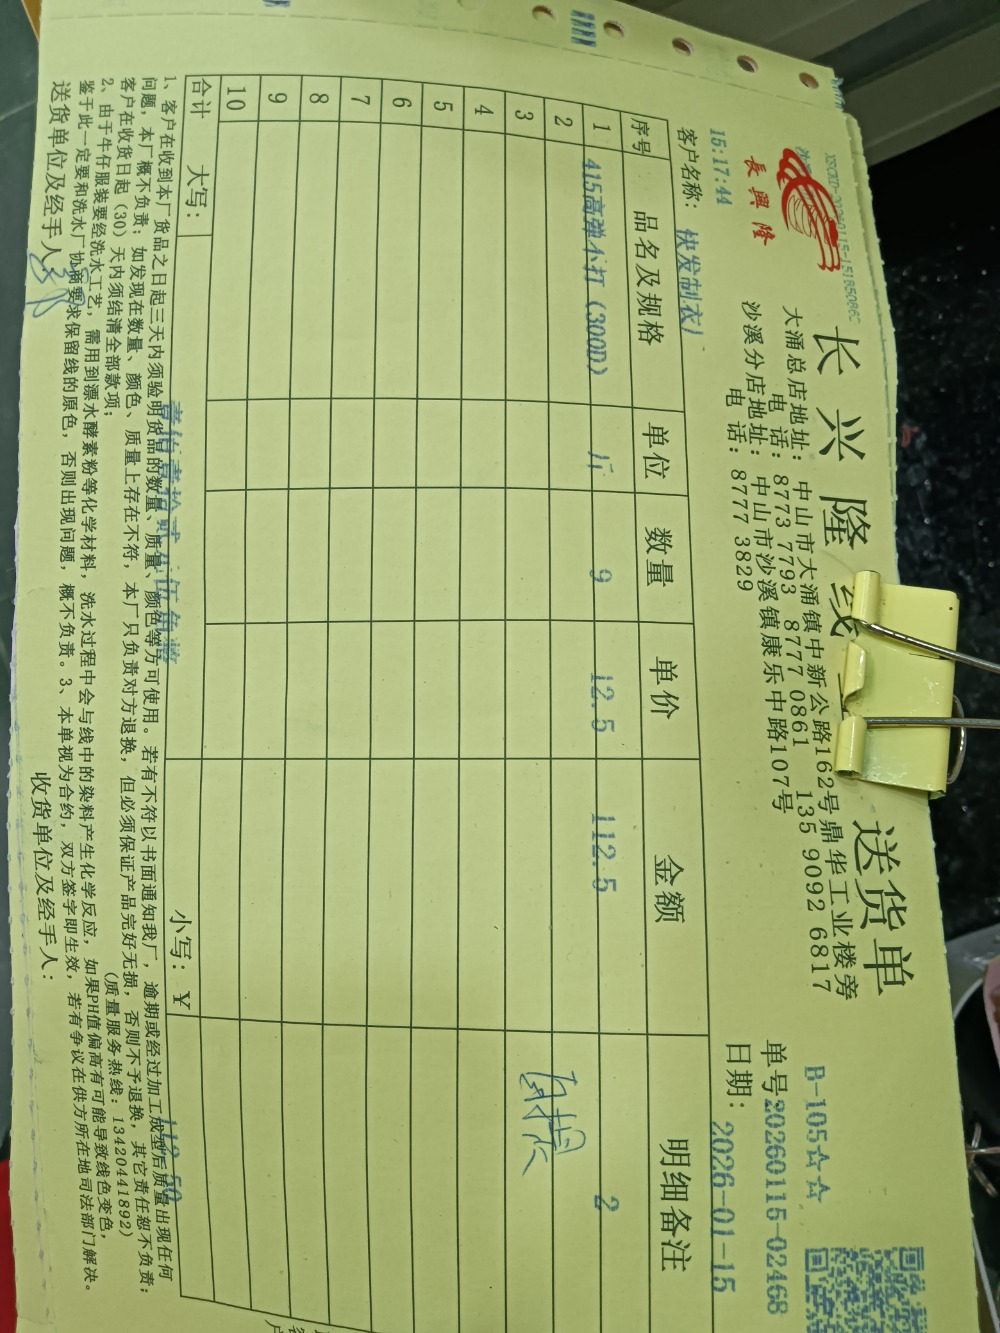 長興隆
长兴隆线 送货单
大涌总店地址：中山市大涌镇中新公路162号鼎华工业楼旁
电 话：8773 7793 8777 0861 135 9092 6817
沙溪分店地址：中山市沙溪镇康乐中路107号
电 话：8777 3829
B-105☆☆
单号20260115-02468
日期：2026-01-15
15:17:44
客户名称：快发制衣厂
序号 品名及规格 单位 数量 单价 金额 明细备注
1 415高弹小打（300D） 斤 9 12.5 112.5 2
2
3
4
5
6
7
8
9
10
合计 大写：壹佰壹拾贰元伍角整 小写：￥112.50
1、客户在收到本厂货品之日起三天内须验明货品的数量、质量、颜色等方可使用。若有不符以书面通知我厂，逾期或经过加工成型后质量出现任何
问题，本厂概不负责；如发现在数量、颜色、质量上存在不符，本厂只负责对方退换，但必须保证产品完好无损，否则不予退换，其它责任恕不负责；
客户在收货日起（30）天内须结清全部款项； （质量服务热线：13420441892）
2、由于牛仔服装要经洗水工艺，需用到漂水酵素粉等化学材料，洗水过程中会与线中的染料产生化学反应，如果PH值偏高有可能导致线色变色，
鉴于此一定要和洗水厂协商要求保留线的原色，否则出现问题，概不负责。3、本单视为合约，双方签字即生效，若有争议在供方所在地司法部门解决。
送货单位及经手人： 收货单位及经手人：